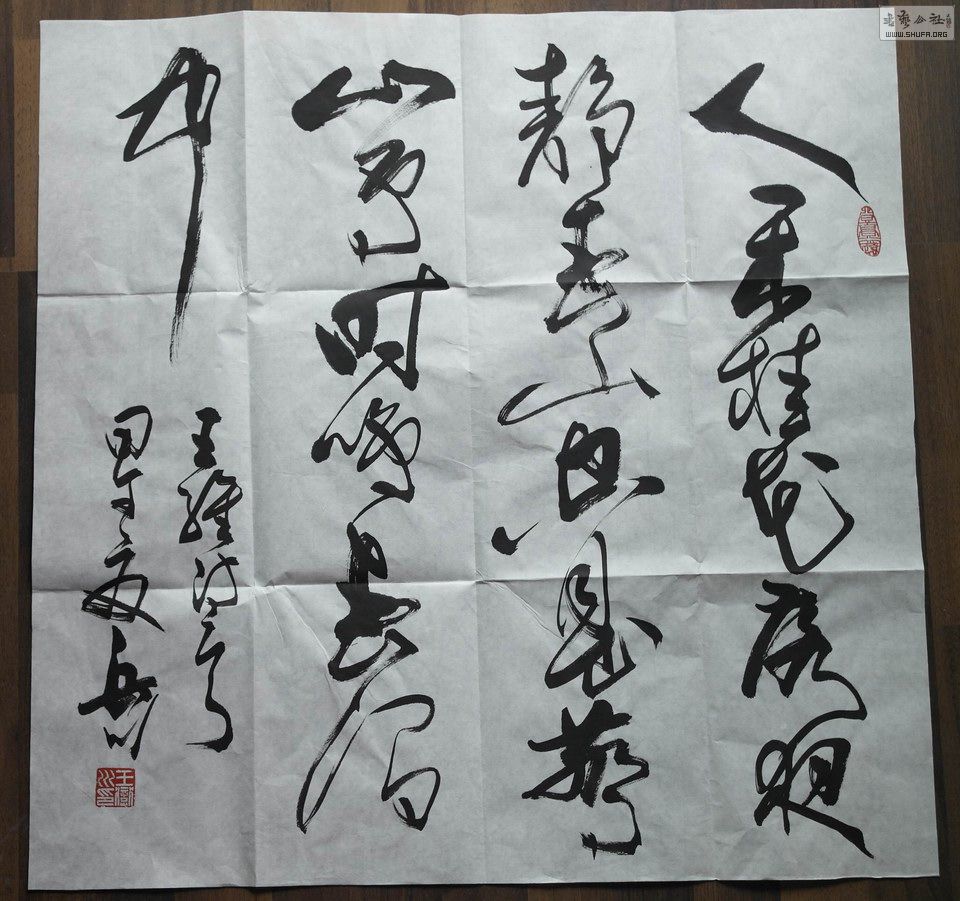 人闲桂花落夜
静春山空月出惊
山鸟时鸣春涧
中
王维诗
甲午夏 岳
书艺公社
WWW.SHUFA.ORG